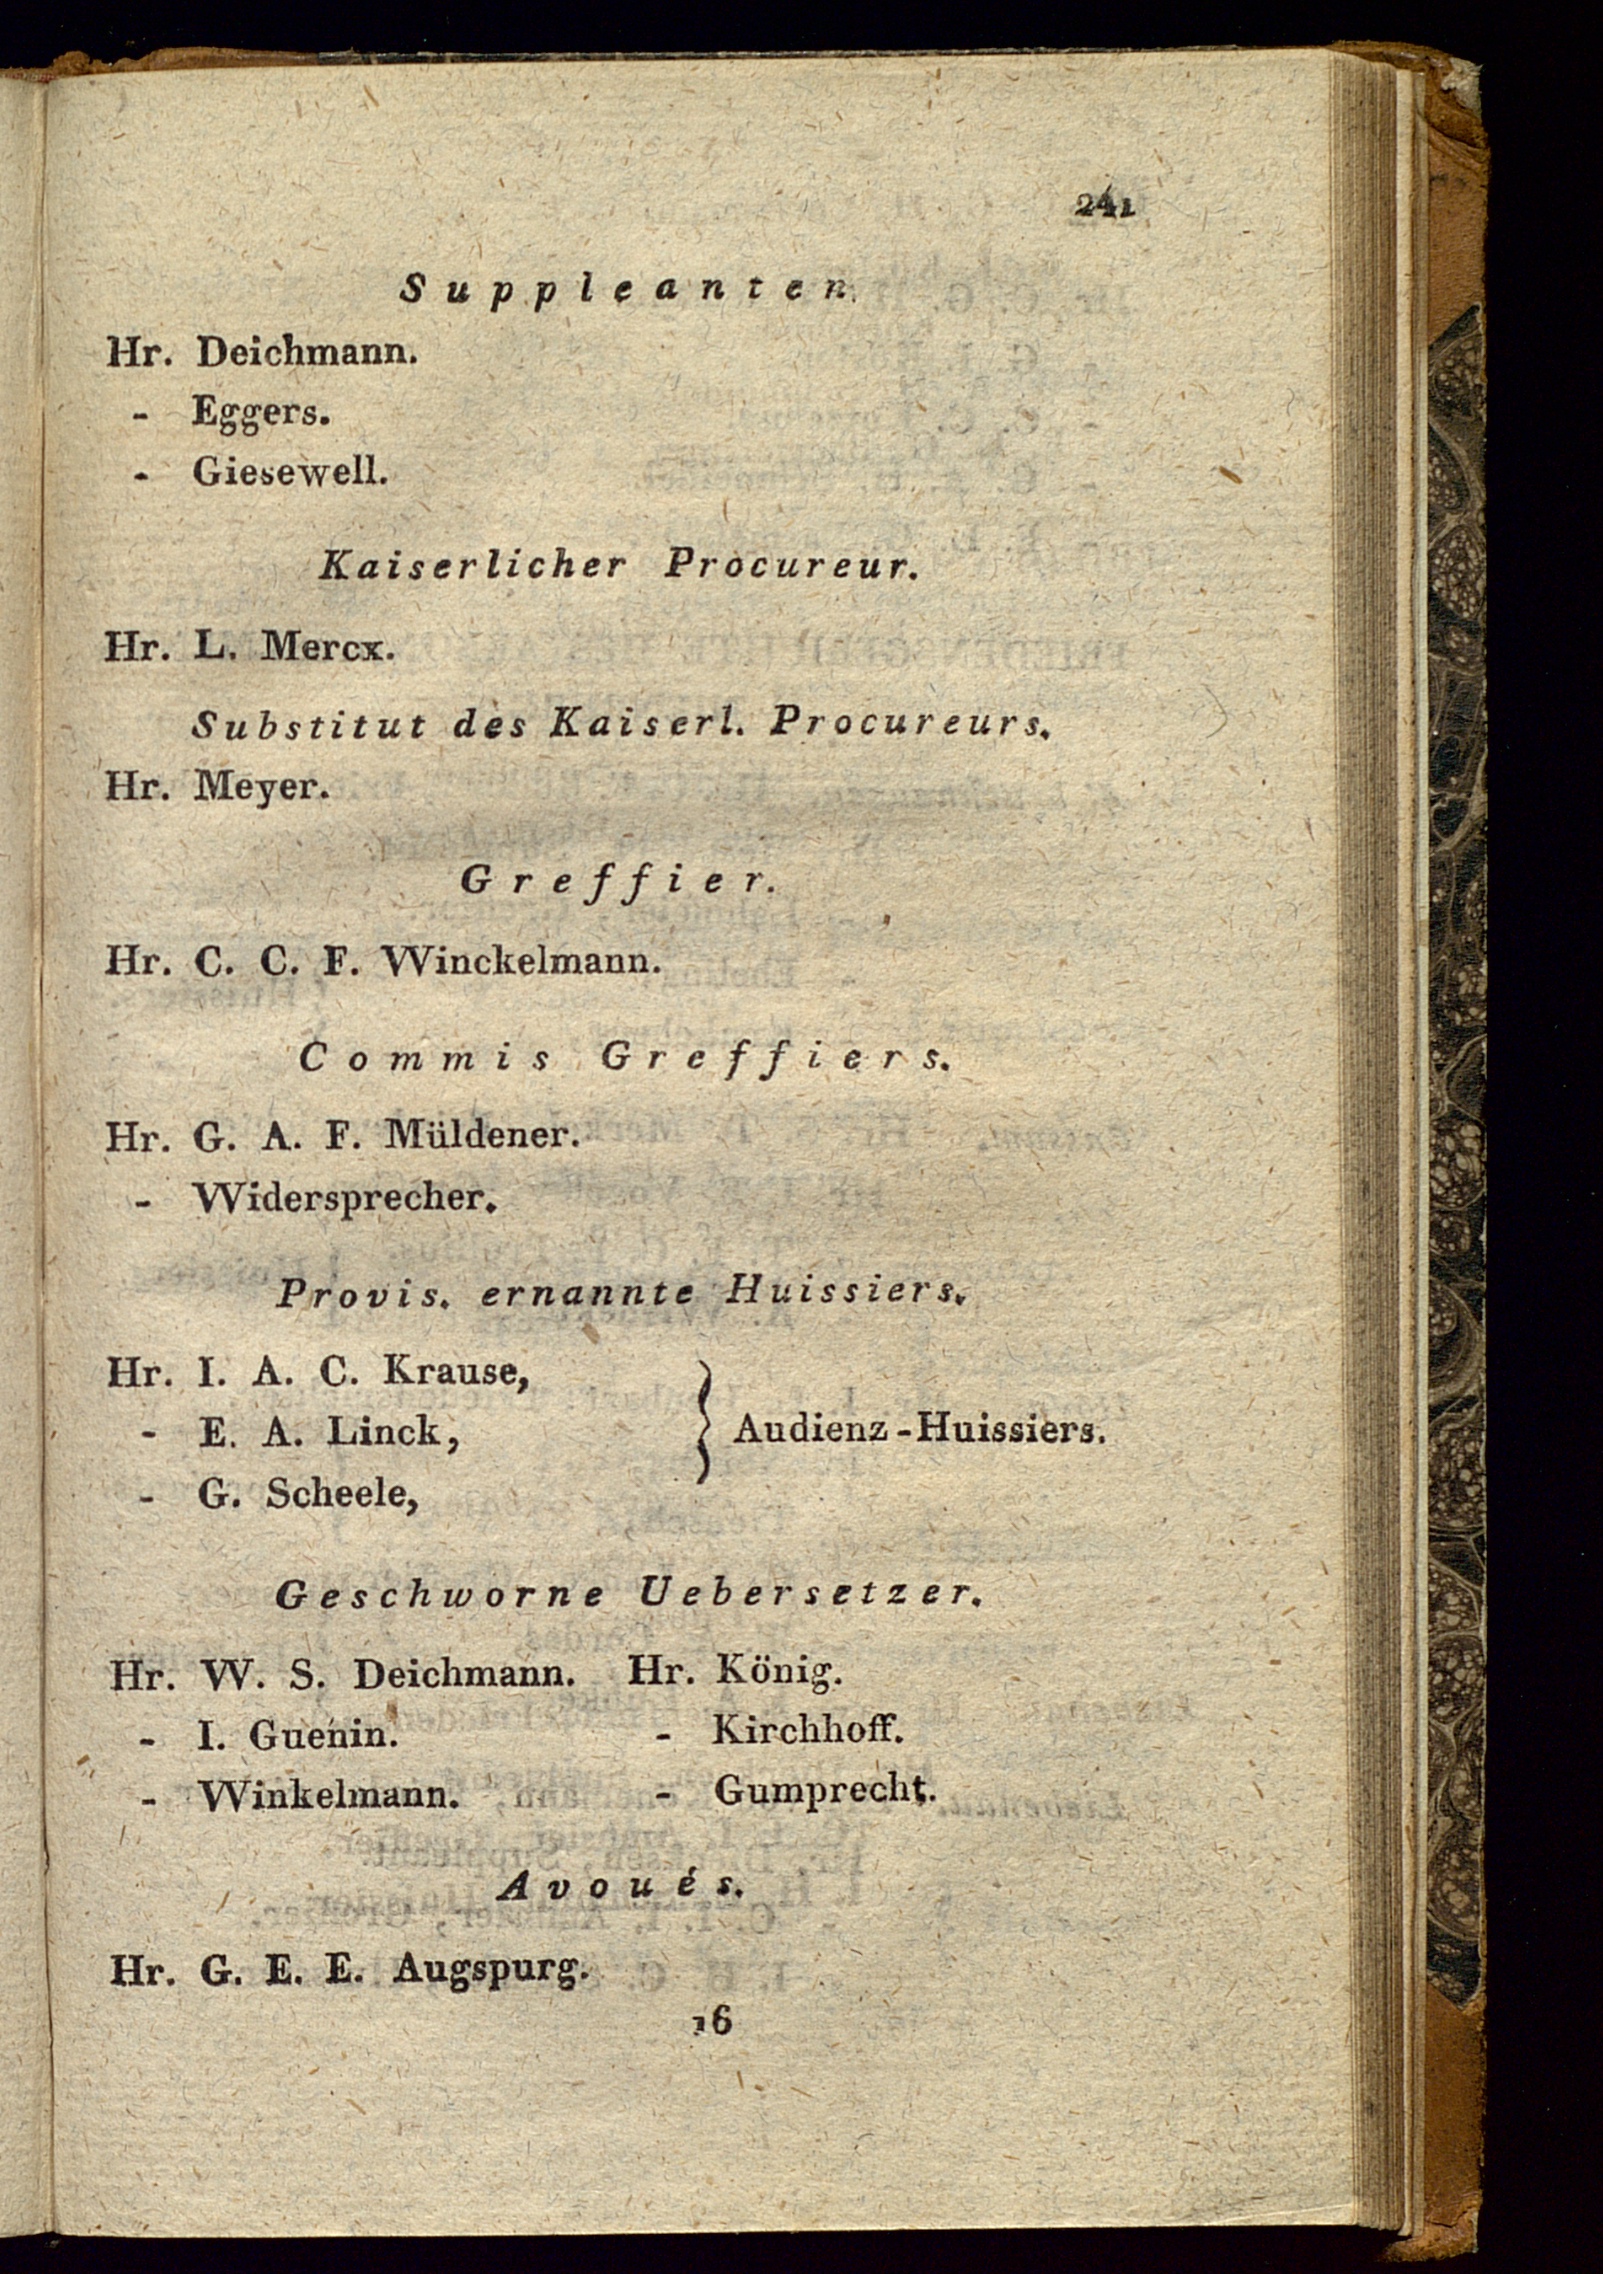 241
Suppleanten.
Hr. Deichmann.
- Eggers.
- Giesewell.
Kaiserlicher Procureur.
Hr. L. Mercx.
Substitut des Kaiserl. Procureurs.
Hr. Meyer.
Greffier.
Hr. C. C. F. Winckelmann.
Commis Greffiers.
Hr. G. A. F. Müldener.
- Widersprecher.
Provis. ernannte Huissiers.
Hr. I. A. C. Krause,
- E. A. Linck, } Audienz-Huissiers.
- G. Scheele,
Geschworne Uebersetzer.
Hr. W. S. Deichmann. Hr. König.
- I. Guenin. - Kirchhoff.
- Winkelmann. - Gumprecht.
Avoués.
Hr. G. E. E. Augspurg.
16